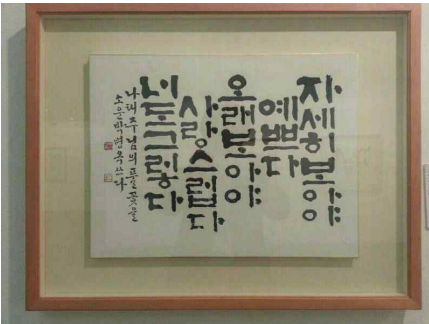 자세히보아야
예쁘다
오래보아야
사랑스럽다
너도그렇다
나태주님의 풀꽃을
소운 박병옥 쓰다